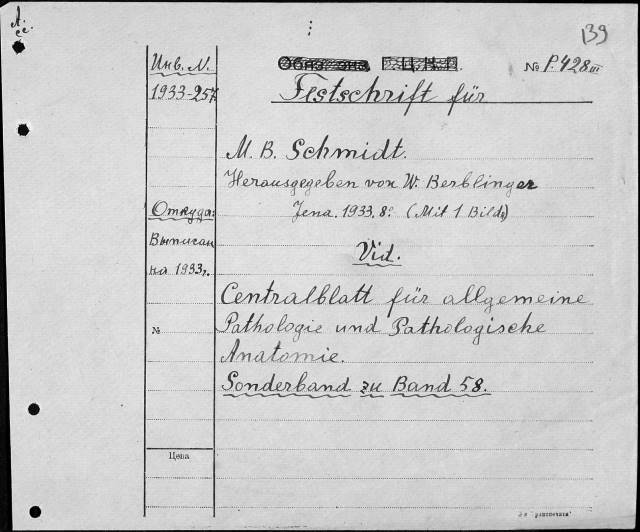 139
Инв. N.
№ P.428 III
1933-257
Festschrift für
M. B. Schmidt.
Herausgegeben von W. Berblinger
Jena. 1933. 8º. (Mit 1 Bilde)
Откуда:
Выписан
на 1933 г.
Vid.
Centralblatt für allgemeine
Pathologie und Pathologische
Anatomie.
Sonderband zu Band 58.
№
Цена